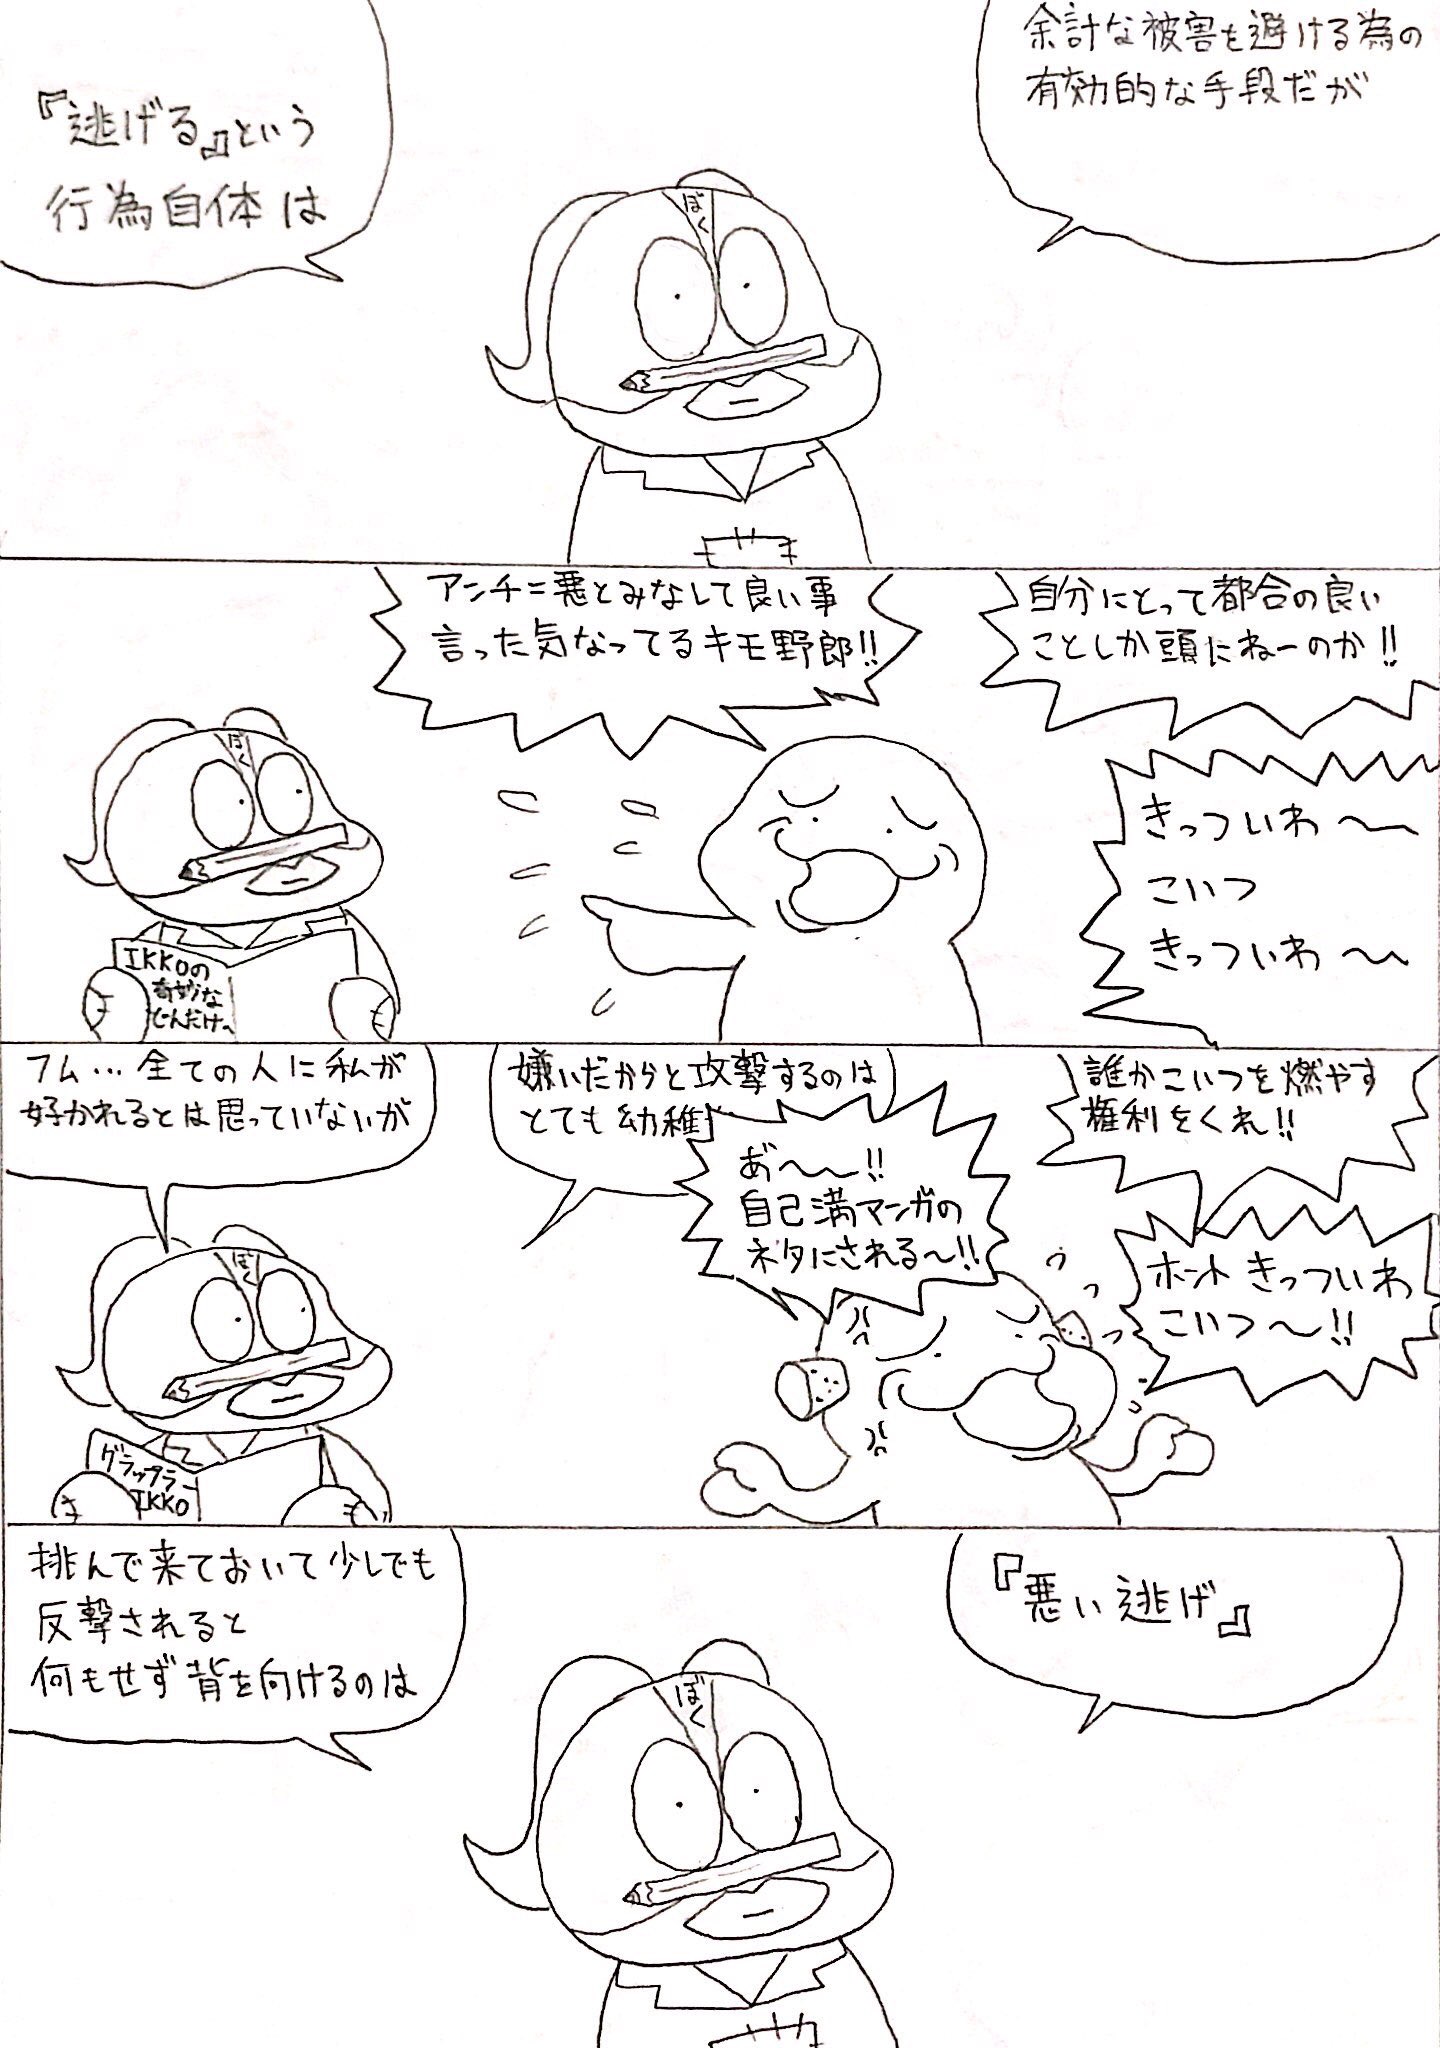 『逃げる』という
行為自体は
余計な被害を避ける為の
有効的な手段だが
ぼく
アンチ=悪とみなして良い事
言った気なってるキモ野郎!!
自分にとって都合の良い
ことしか頭にねーのか!!
きっついわ〜
こいつ
きっついわ〜
ぼく
IKKOの
奇妙な
どんだけ〜
フム…全ての人に私が
好かれるとは思っていないが
嫌いだからと攻撃するのは
とても幼稚
あ゛〜〜!!
自己満マンガの
ネタにされる〜!!
誰かこいつを燃やす
権利をくれ!!
ホントきっついわ
こいつ〜!!
ぼく
グラップラー
IKKO
挑んで来ておいて少しでも
反撃されると
何もせず背を向けるのは
『悪い逃げ』
ぼく